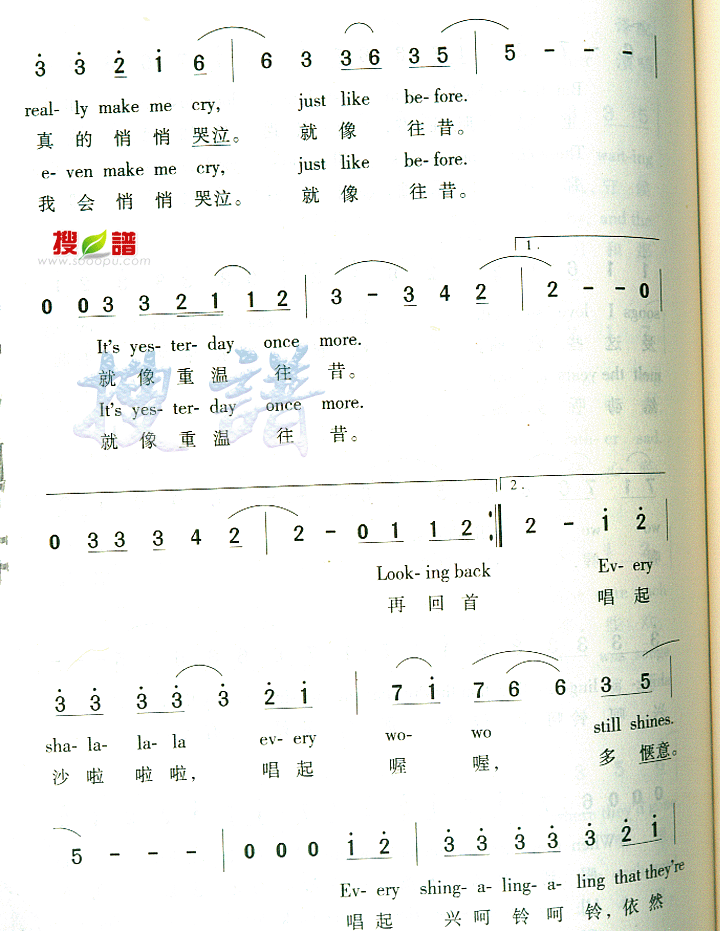 3 3 2 1 6 | 6 3 3 6 3 5 | 5 - - - |
real- ly make me cry, just like be- fore.
真 的 悄 悄 哭泣。 就 像 往 昔。
e- ven make me cry, just like be- fore.
我 会 悄 悄 哭泣。 就 像 往 昔。
搜 譜
www.sooopu.com
1.
0 0 3 3 2 1 1 2 | 3 - 3 4 2 | 2 - - 0 |
It's yes- ter- day once more.
就 像 重 温 往 昔。
It's yes- ter- day once more.
就 像 重 温 往 昔。
搜 譜
2.
0 3 3 3 4 2 | 2 - 0 1 1 2 :| 2 - 1 2
Look- ing back Ev- ery
再 回 首 唱 起
3 3 3 3 3 2 1 | 7 1 7 6 6 3 5 |
sha- la- la- la ev- ery wo- wo still shines.
沙 啦 啦 啦, 唱 起 喔 喔, 多 惬意。
5 - - - | 0 0 0 1 2 | 3 3 3 3 3 2 1 |
Ev- ery shing- a- ling- a- ling that they're
唱 起 兴 呵 铃 呵 铃, 依 然